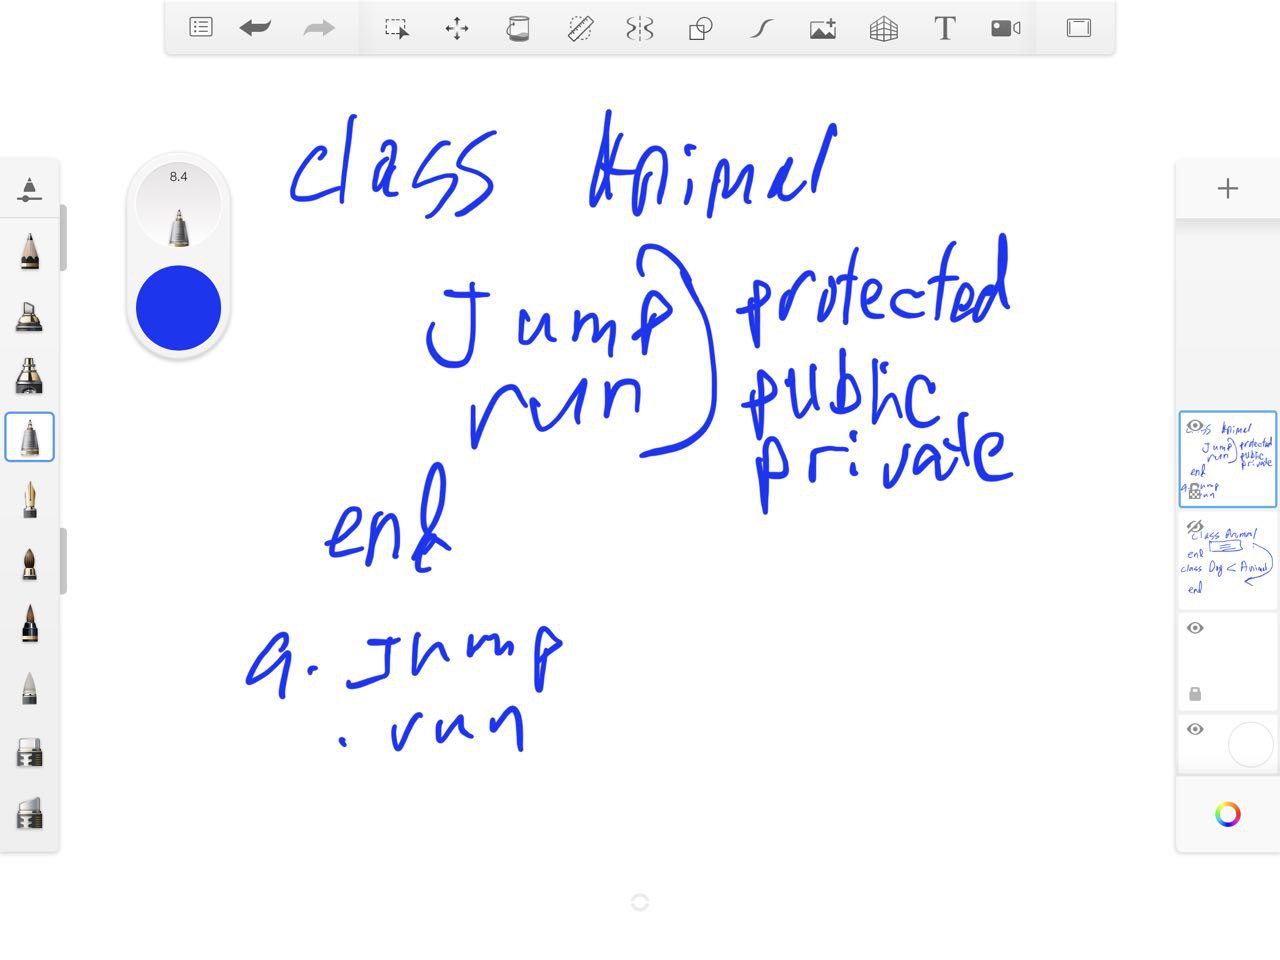 8.4
T
class Animal
Jump
run
protected
public
private
end
a. Jump
. run
class Animal
Jump
run
protected
public
private
end
a. Jump
run
class Animal
end
class Dog < Animal
end